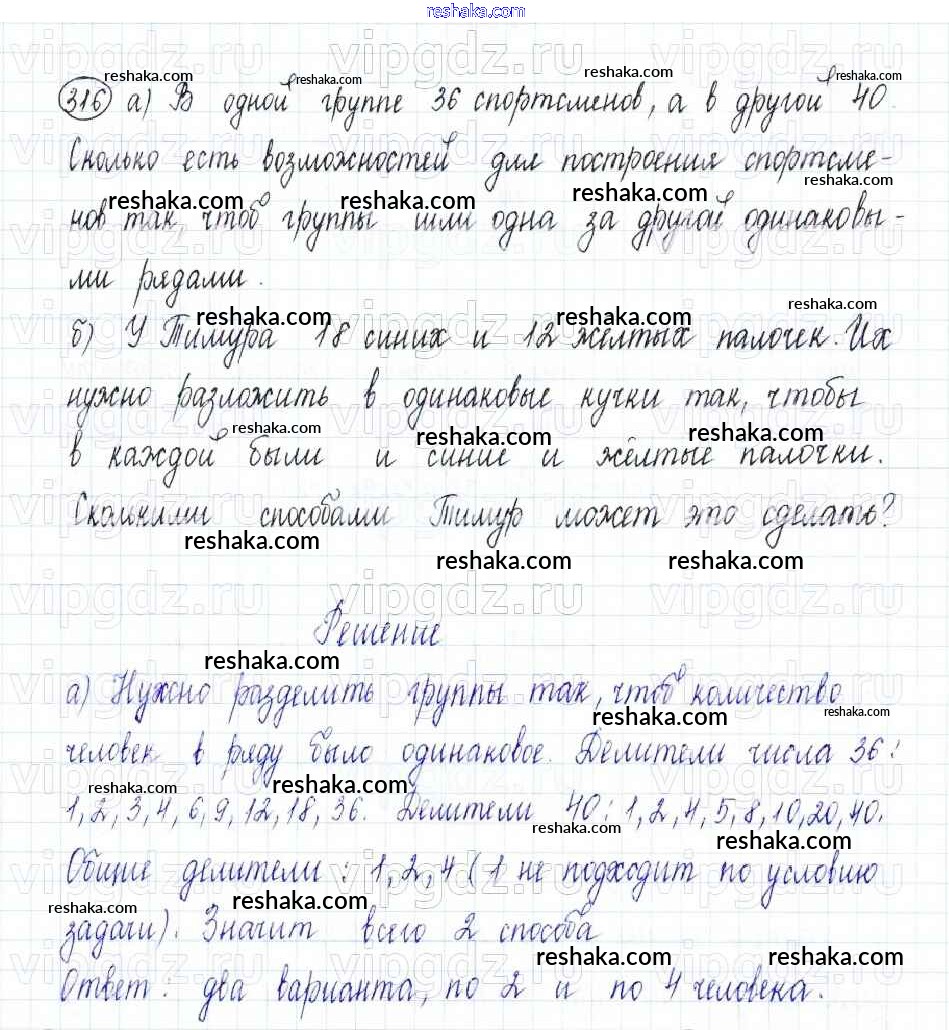 reshaka.com
316 а) В одной группе 36 спортсменов, а в другой 40.
Сколько есть возможностей для построения спортсме-
нов так, чтоб группы шли одна за другой одинаковы-
ми рядами.
б) У Тимура 18 синих и 12 жёлтых палочек. Их
нужно разложить в одинаковые кучки так, чтобы
в каждой были и синие и жёлтые палочки.
Сколькими способами Тимур может это сделать?
Решение
а) Нужно разделить группы так, чтоб количество
человек в ряду было одинаковое. Делители числа 36:
1, 2, 3, 4, 6, 9, 12, 18, 36. Делители 40: 1, 2, 4, 5, 8, 10, 20, 40.
Общие делители: 1, 2, 4 (1 не подходит по условию
задачи). Значит всего 2 способа
Ответ: два варианта, по 2 и по 4 человека.